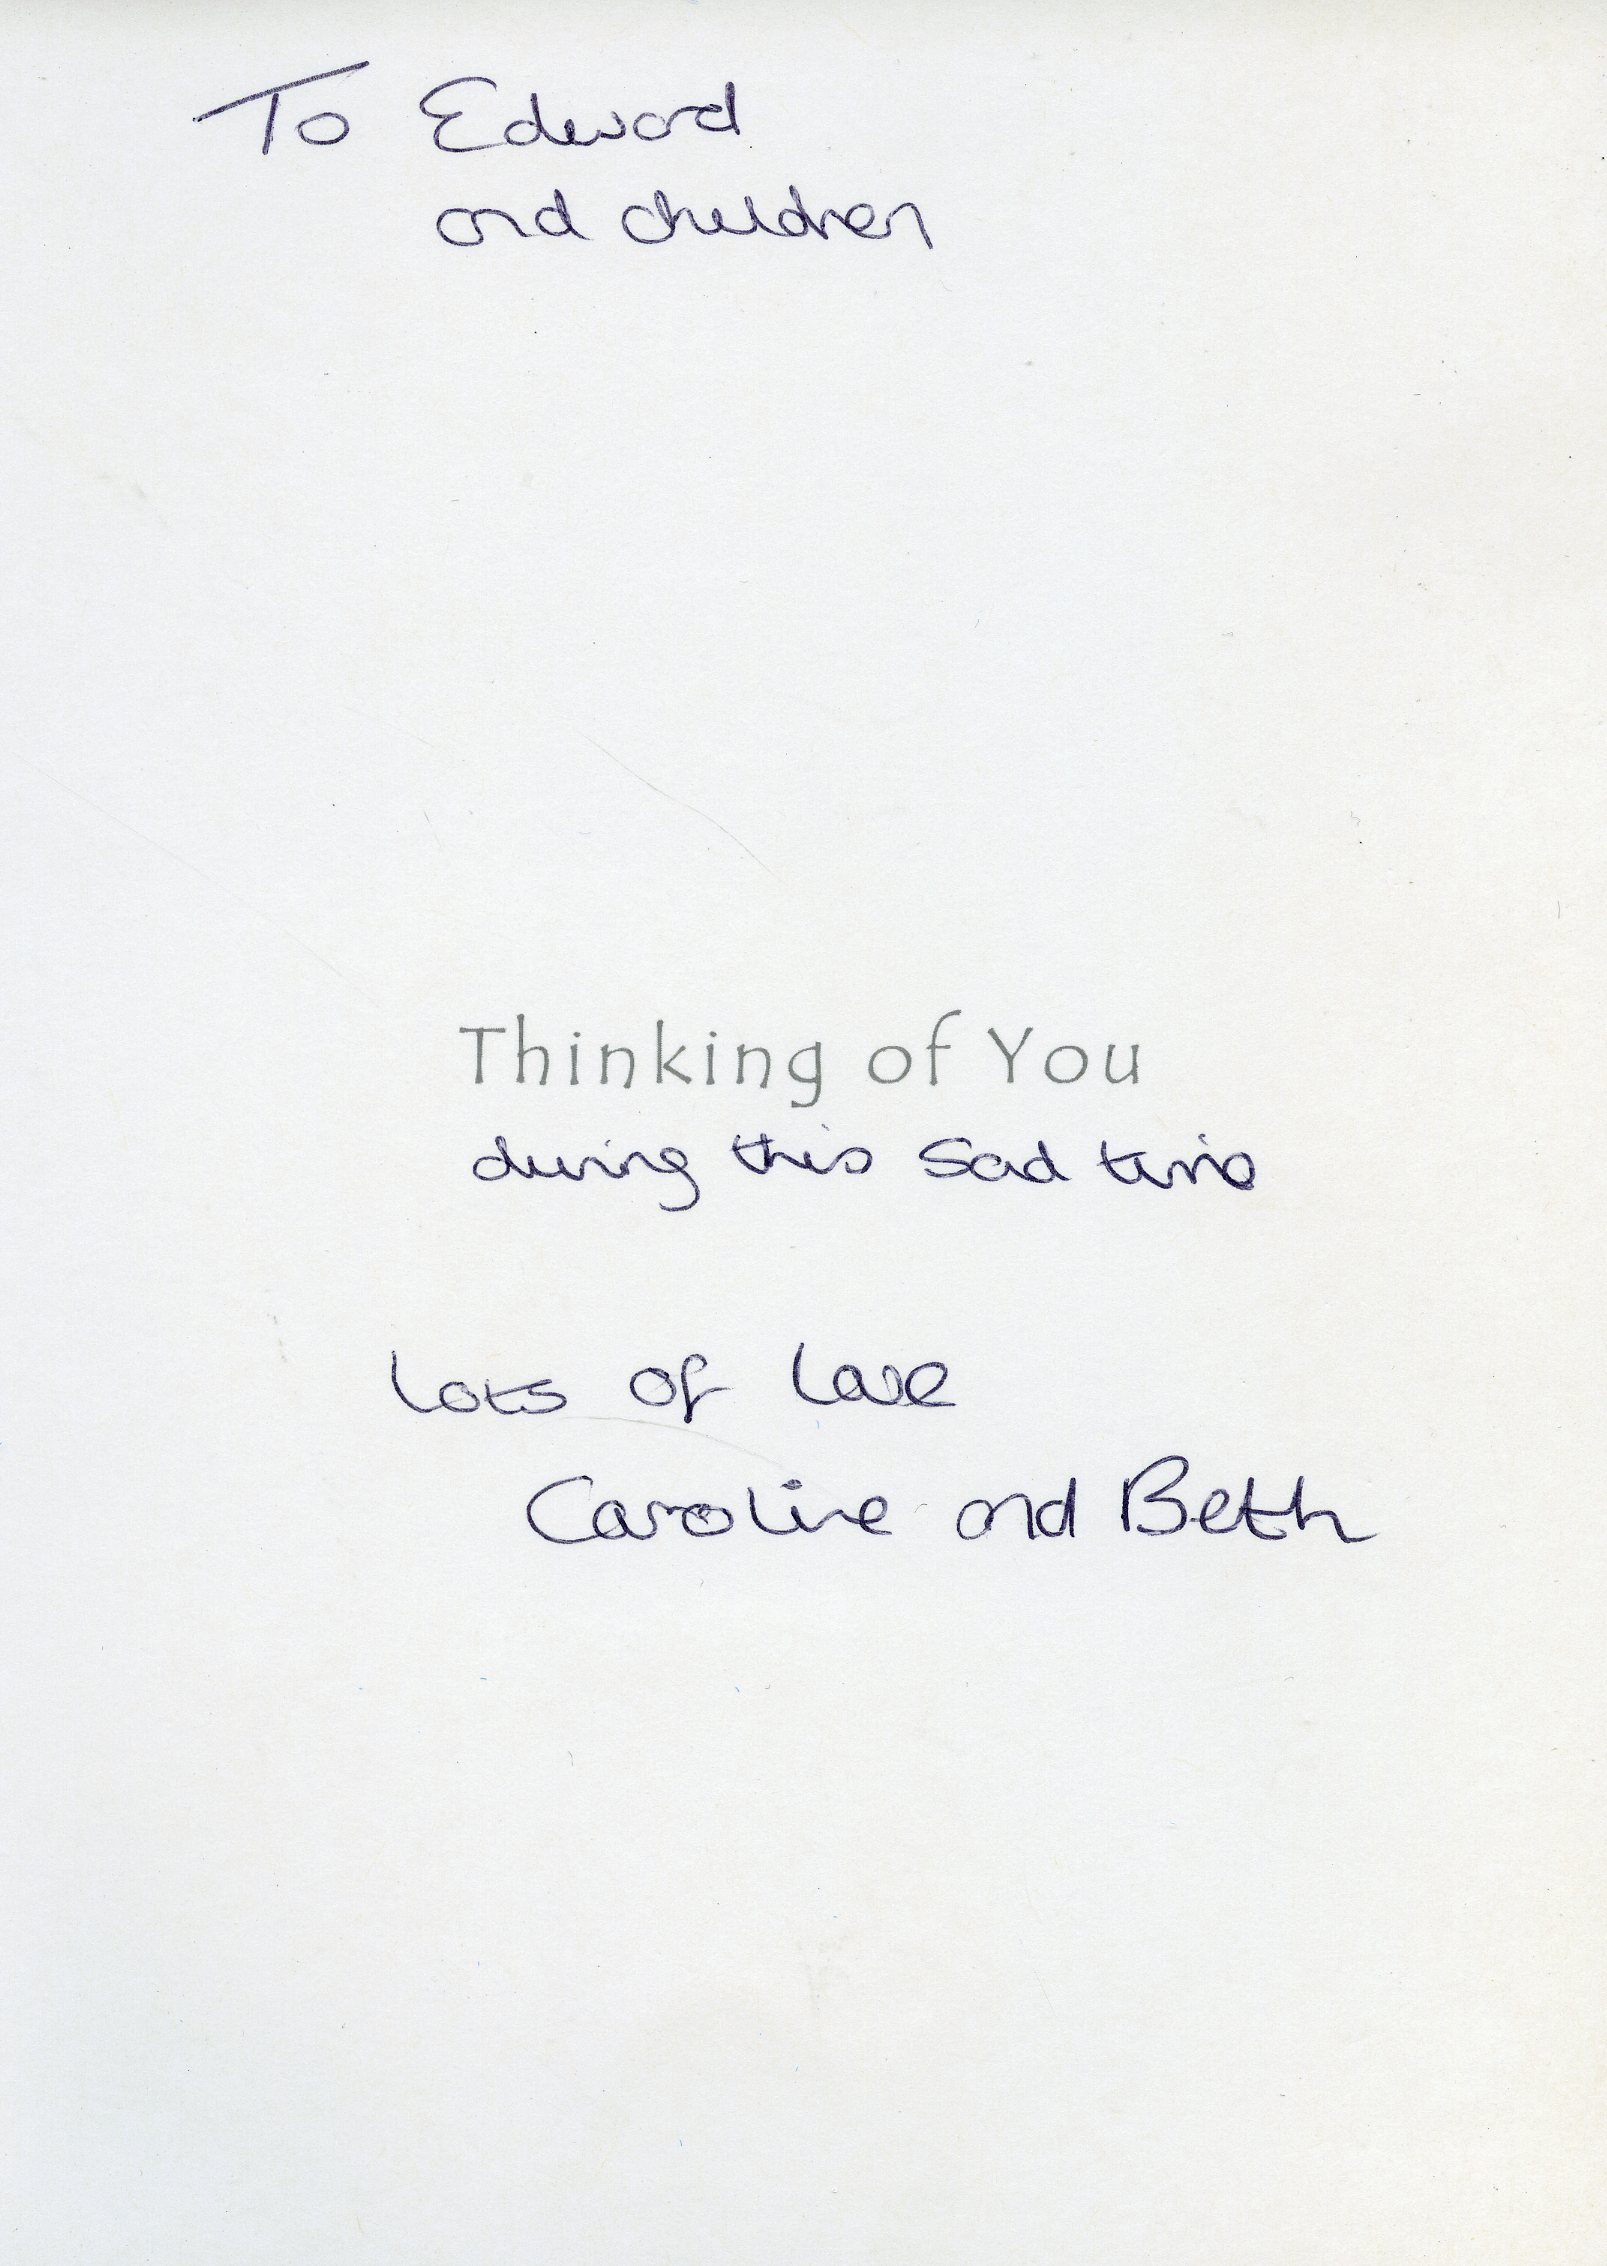 To Edward
and children
Thinking of You
during this sad time
lots of love
Caroline and Beth